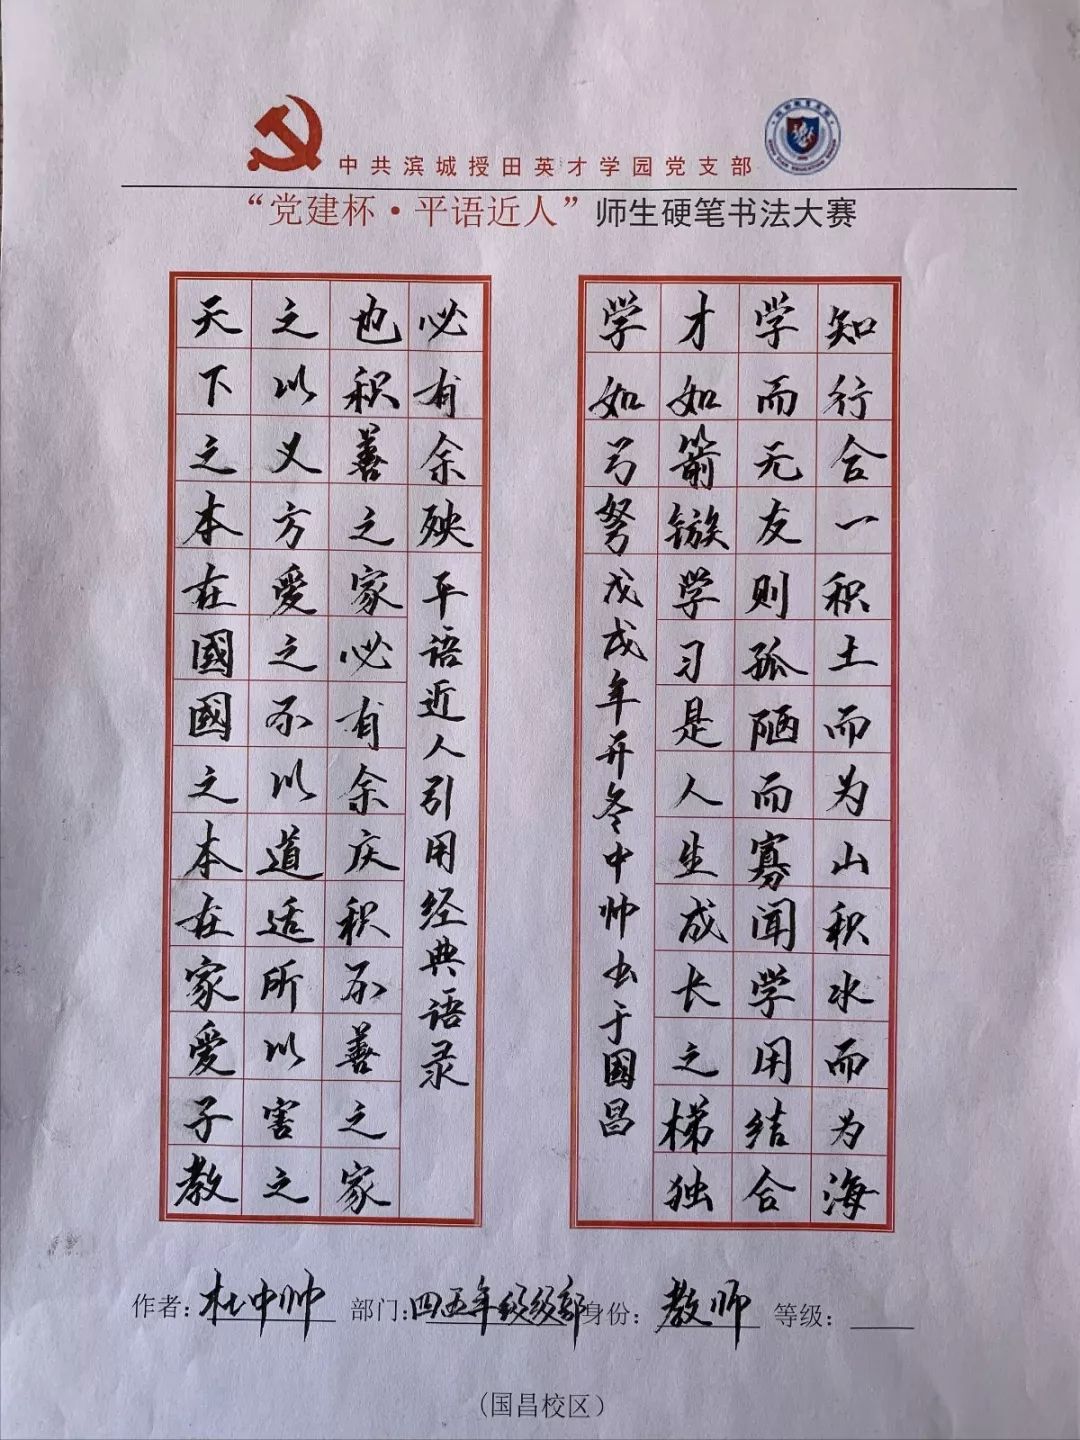 中共滨城授田英才学园党支部
“党建杯·平语近人”师生硬笔书法大赛
知行合一积土而为山积水而为海
学而无友则孤陋而寡闻学用结合
才如箭镞学习是人生成长之梯独
学如弓弩戊戌年开冬中帅书于国昌
天下之本在國國之本在家爱子教
之以义方爱之不以道适所以害之
也积善之家必有余庆积不善之家
必有余殃平语近人引用经典语录
作者:杜中帅 部门:四五年级级部 身份:教师 等级:
(国昌校区)